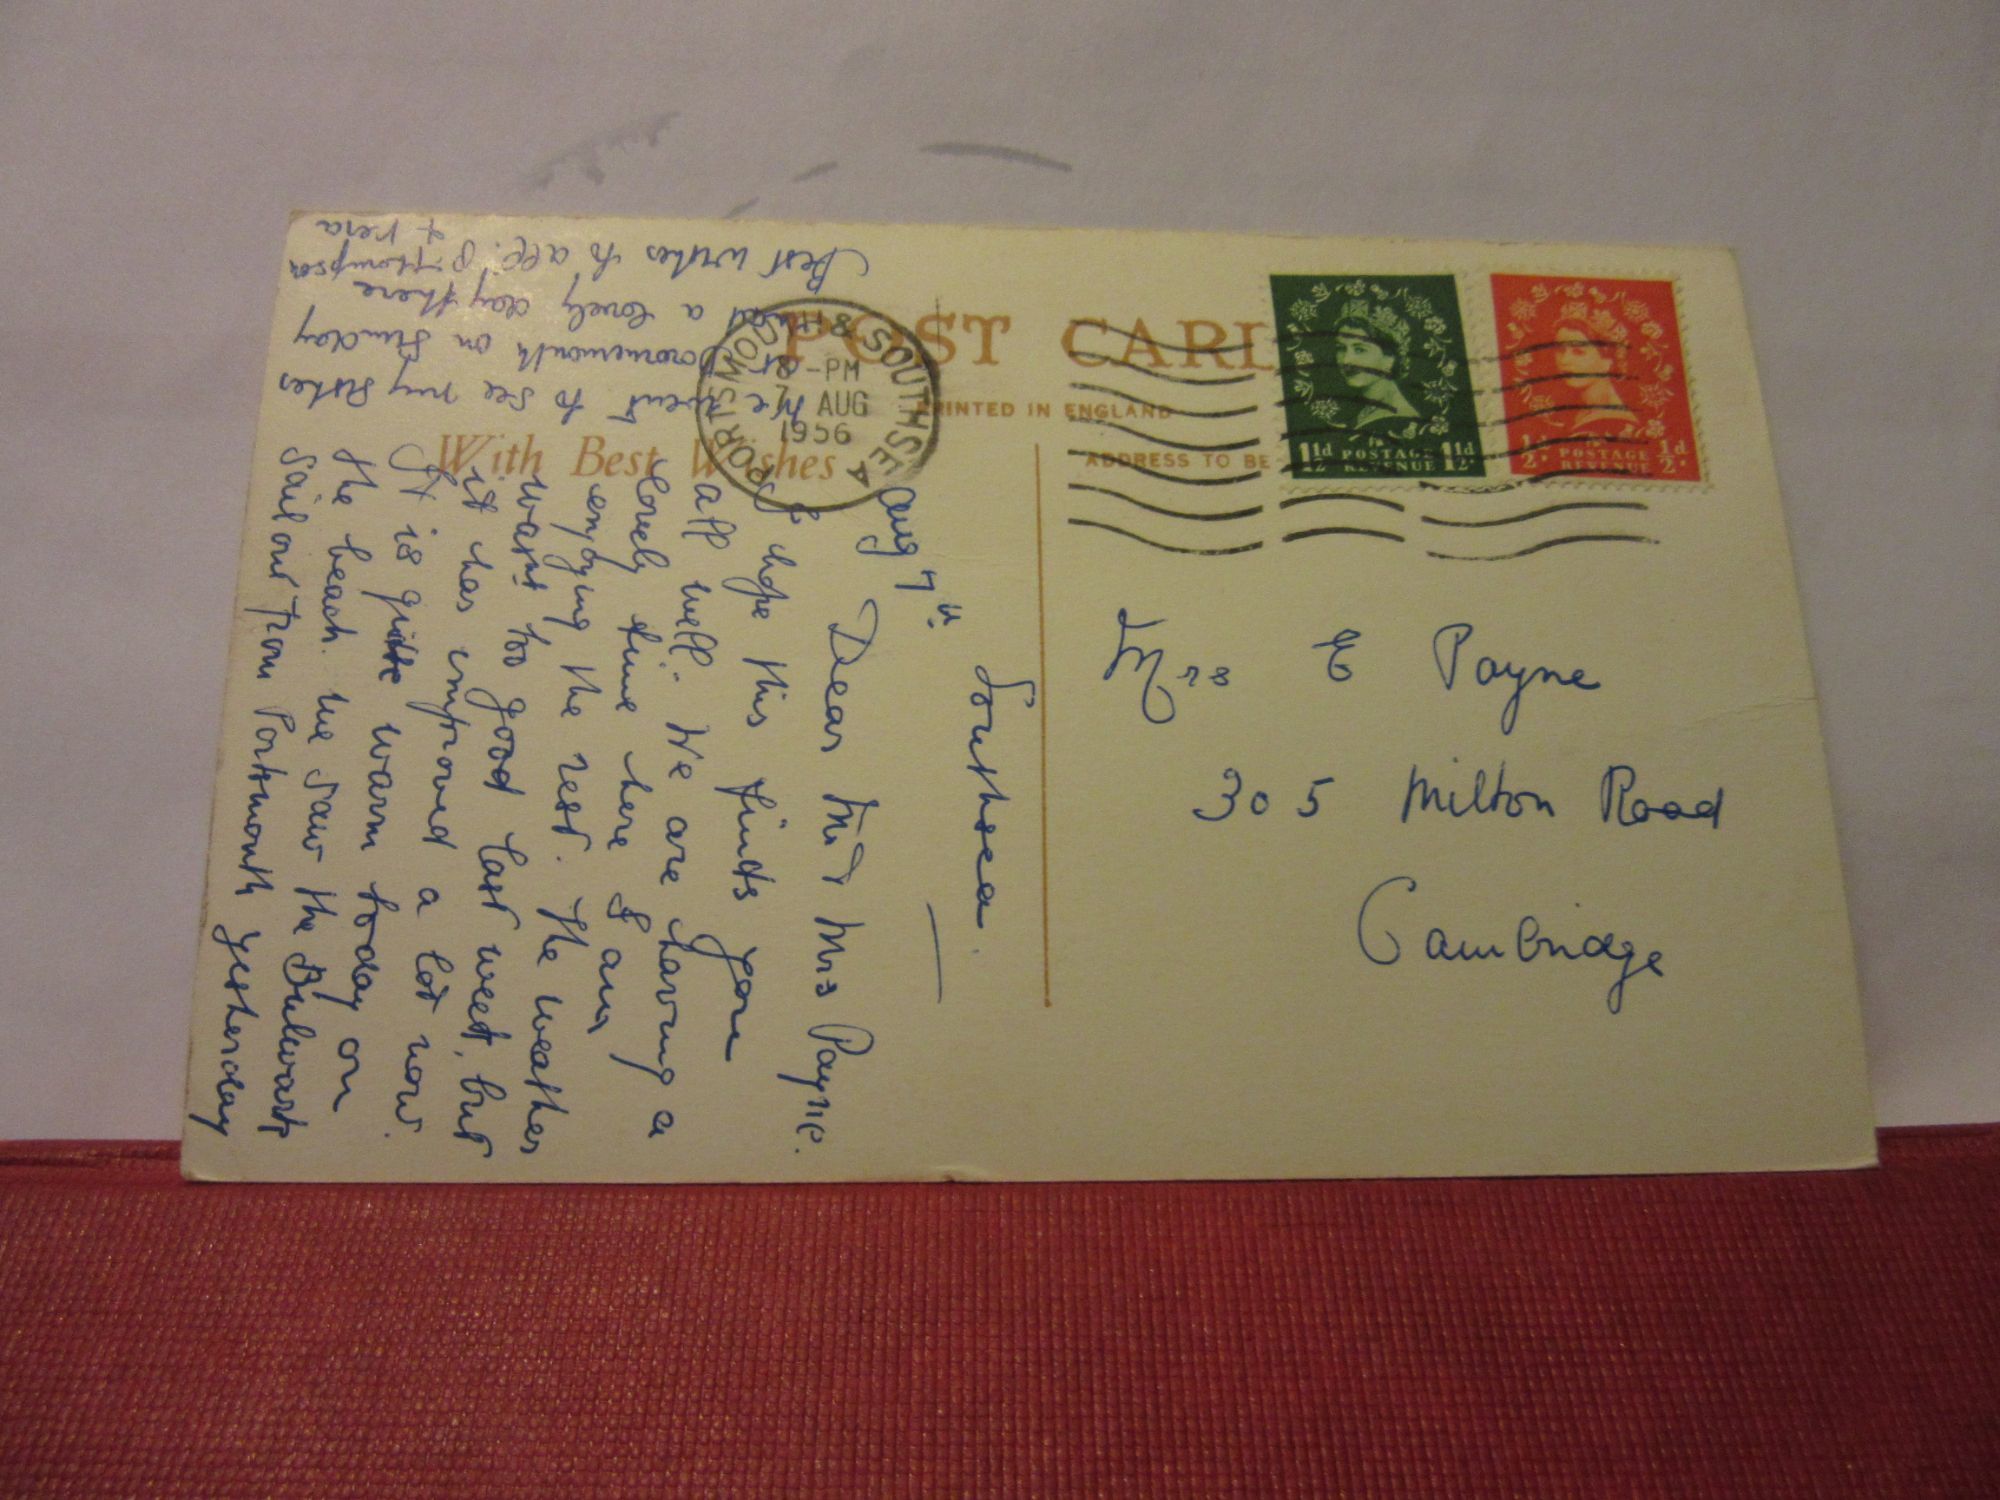 POST CARD
PRINTED IN ENGLAND
ADDRESS TO BE
With Best Wishes
PORTSMOUTH & SOUTHSEA
-PM
7 AUG
1956
1½d POSTAGE REVENUE 1½d
½d POSTAGE REVENUE ½d
Mrs E Payne
305 Milton Road
Cambridge
Aug 7th Southsea.
Dear Mr & Mrs Payne.
I hope this finds you
all well. We are having a
lovely time here & am
enjoying the rest. The weather
wasnt too good last week, but
it has improved a lot now.
It is quite warm today on
the beach. We saw the Bulwark
sail out from Portsmouth yesterday
We went to see my sister
at Bournemouth on Sunday
& had a lovely day there
Best wishes to all. P. Thompson
& Vera